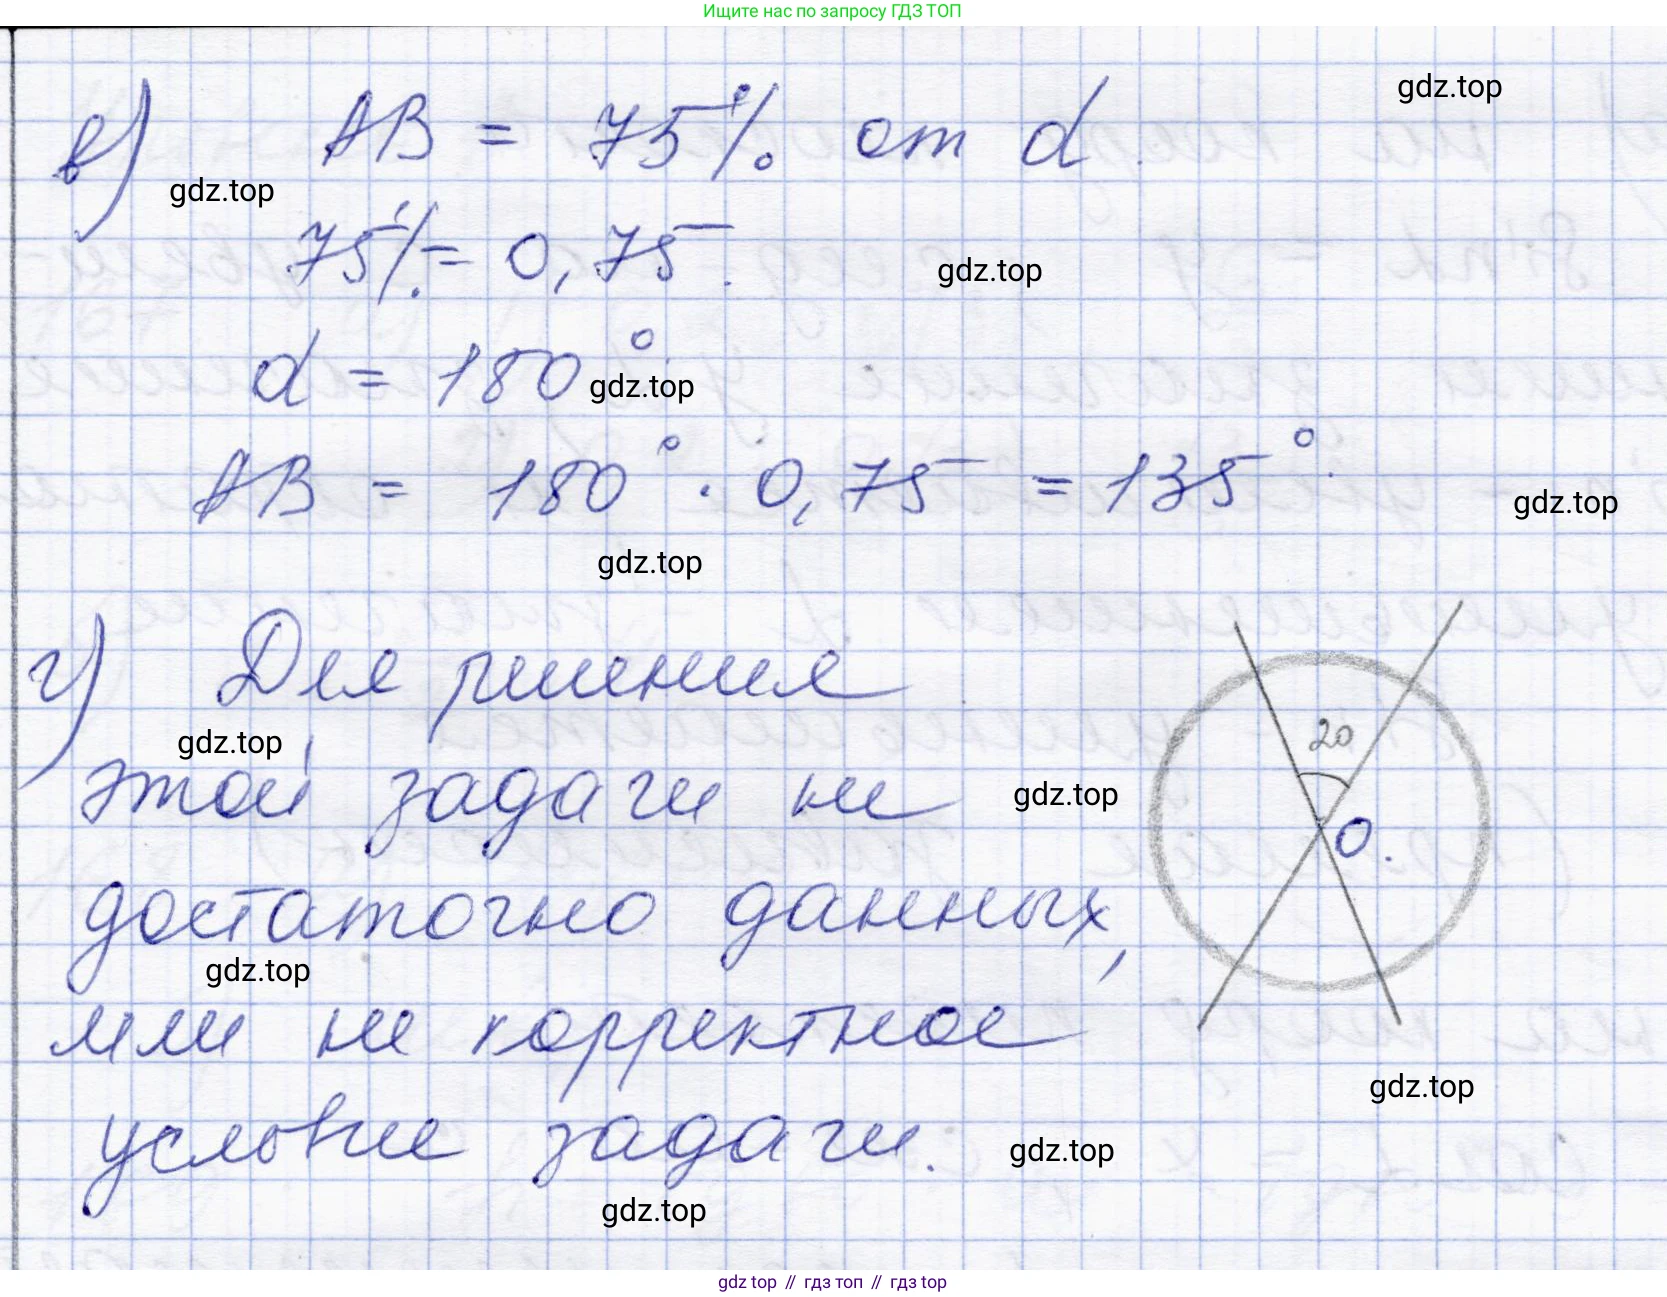 Ищите нас по запросу ГДЗ ТОП
в) AB = 75% от d.
gdz.top
gdz.top
75% = 0,75.
gdz.top
d = 180°.
gdz.top
AB = 180° · 0,75 = 135°.
gdz.top
gdz.top
г) Для решения
20
gdz.top
этой задачи не
gdz.top
O.
достаточно данных,
gdz.top
или не корректное
gdz.top
условие задачи.
gdz.top
gdz.top
gdz top // гдз топ // гдз top